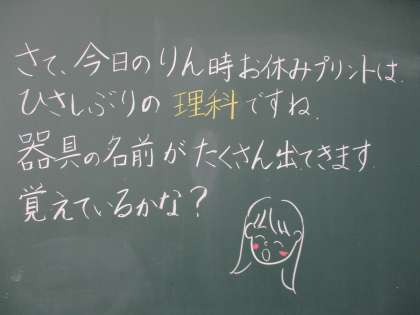 さて、今日のりん時お休みプリントは.
ひさしぶりの 理科ですね.
器具の名前がたくさん出てきます.
覚えているかな？